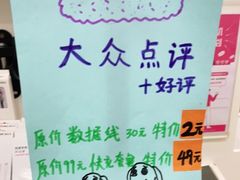 大众点评
+好评
原价 数据线 30元 特价 2元
原价99元 快充套餐 特价 49元